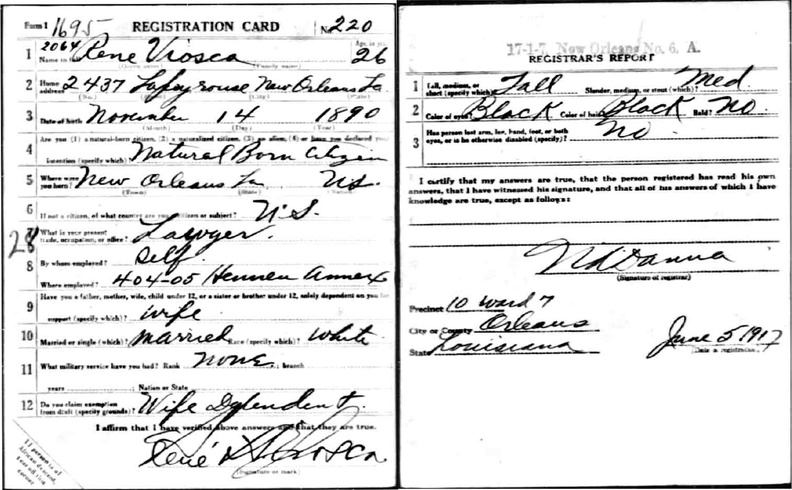 Form 1 1695 REGISTRATION CARD No. 220
1 2064 Rene Viosca Age, in yrs. 26
Name in full
(Given name) (Family name)
2 Home address 2437 Lapeyrouse New Orleans La
(No.) (Street) (City) (State)
3 Date of birth November 14 1890
(Month) (Day) (Year)
4 Are you (1) a natural-born citizen, (2) a naturalized citizen, (3) an alien, (4) or have you declared your
intention (specify which)? Natural Born Citizen
5 Where were you born? New Orleans La U.S.
(Town) (State) (Nation)
6 If not a citizen, of what country are you a citizen or subject? U.S.
7 What is your present trade, occupation, or office? Lawyer. 28
8 By whom employed? Self
Where employed? 404-05 Hennen Annex
9 Have you a father, mother, wife, child under 12, or a sister or brother under 12, solely dependent on you for
support (specify which)? Wife
10 Married or single (which)? Married Race (specify which)? White
11 What military service have you had? Rank None; branch
years ; Nation or State
12 Do you claim exemption from draft (specify grounds)? Wife Dependent
I affirm that I have verified above answers and that they are true.
René Viosca
(Signature or mark)
If person is of
African descent,
tear off this
corner
17-1-7. New Orleans No. 6. A.
REGISTRAR'S REPORT
1 Tall, medium, or short (specify which)? Tall Slender, medium, or stout (which)? Med.
2 Color of eyes? Black Color of hair? Black Bald? No.
3 Has person lost arm, leg, hand, foot, or both
eyes, or is he otherwise disabled (specify)? No
I certify that my answers are true, that the person registered has read his own
answers, that I have witnessed his signature, and that all of his answers of which I have
knowledge are true, except as follows:
(Signature of registrar)
Precinct 10 Ward 7
City or County Orleans
State Louisiana June 5 1917
(Date of registration)